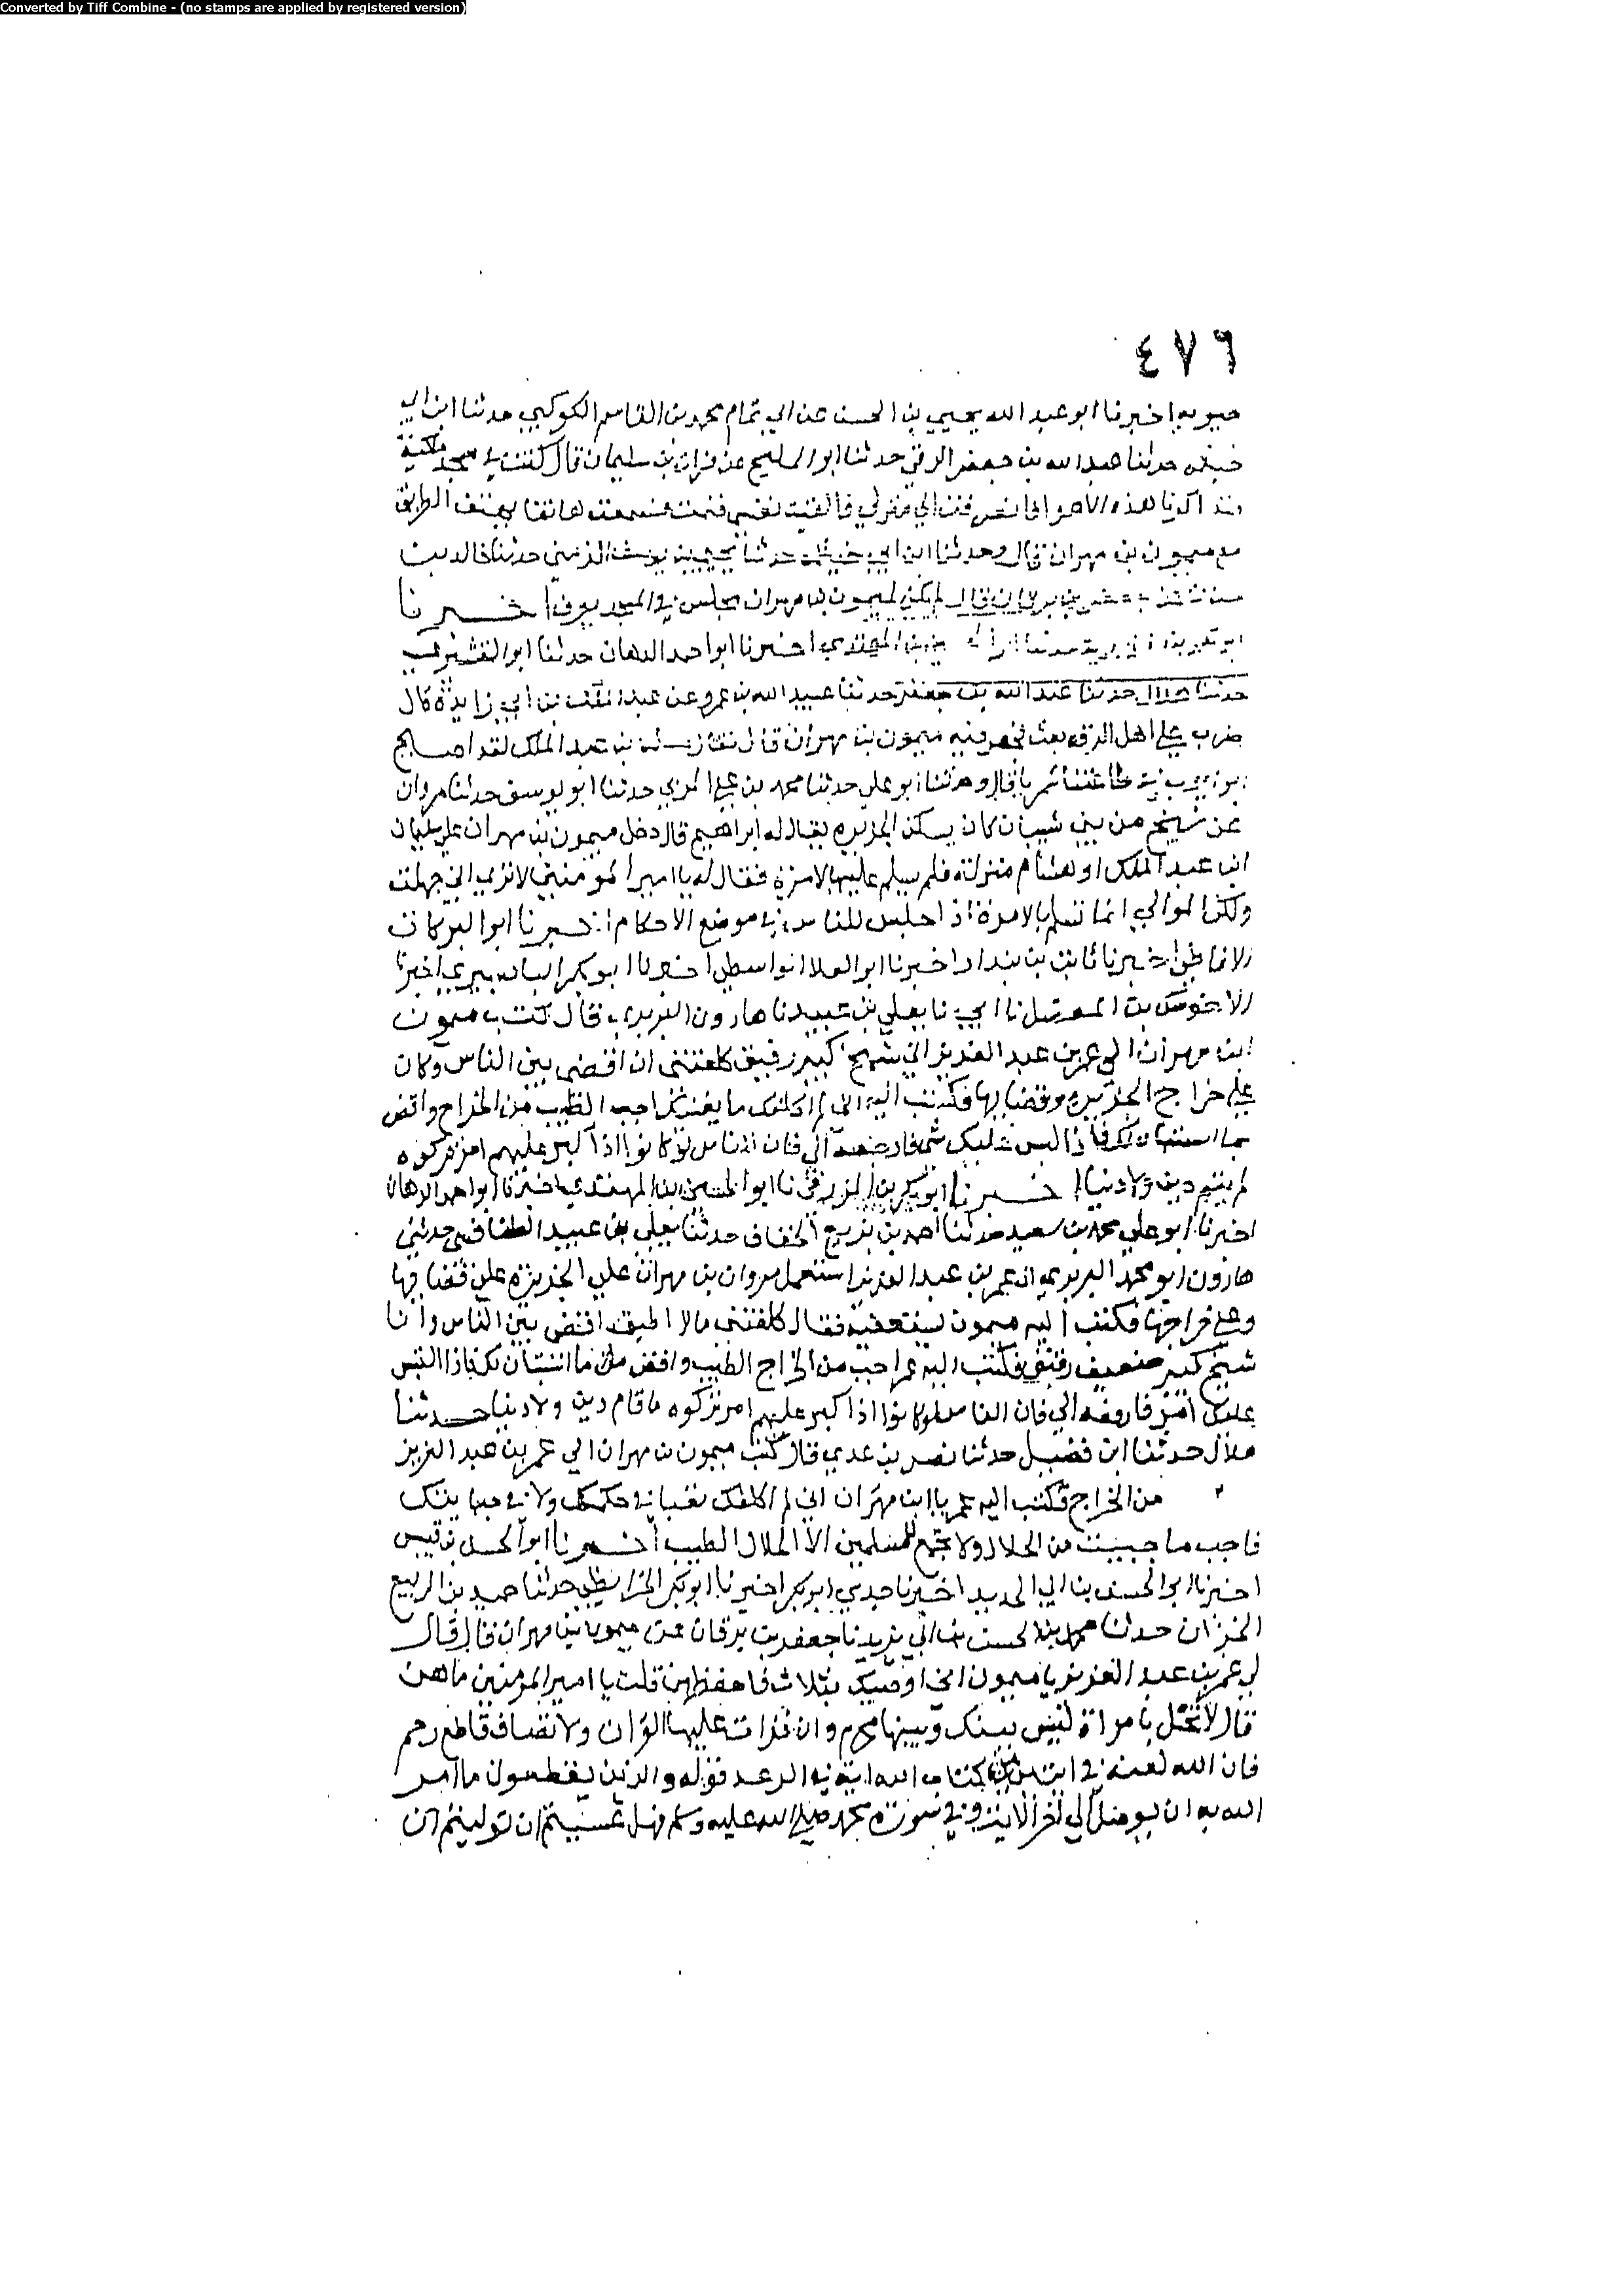 Converted by Tiff Combine - (no stamps are applied by registered version)
٤٧٦
حيويه اخبرنا ابو عبد الله يحيى بن الحسن عن ابي تمام محمد بن القاسم الكوكبي حدثنا ابن ابي
خيثمه حدثنا عبد الله بن جعفر الرقي حدثنا ابو المليح عن فرات بن سليمان قال كنت في مسجد ملطية
فتذاكرنا هذه الاهوا فانصرفت الي منزلي فالقيت نفسي فنمت فسمعت هاتفا يهتف الطريق
مع ميمون بن مهران قال وحدثنا ابن ابي خيثمة حدثنا يحيى بن يوسف الزمي حدثنا خالد بن
جعفر بن برقان قال لم يكن لميمون بن مهران مجلس في المسجد يعرف اخبرنا
بن المهتدي اخبرنا ابو احمد الدهان حدثنا ابو علي القشيري
حدثنا هلال حدثنا عبد الله بن جعفر حدثنا عبيد الله بن عمرو عن عبد الملك بن ابي زايدة قال
ضرب علي اهل الرقه بعث فجهز فيه ميمون بن مهران قال فقال مسلمة بن عبد الملك لقد اصبح
ابو ايوب في طاعتنا شمريا قال وحدثنا ابو علي حدثنا محمد بن علي المري حدثنا ابو يوسف حدثنا مروان
عن شيخ من بني شيبان كان يسكن الجزيره يقال له ابراهيم قال دخل ميمون بن مهران علي سليمان
ابن عبد الملك او هشام منزلة فلم يسلم عليه بالامرة فقال له يا امير المومنين لا تري اني جهلت
ولكن الوالي انما تسلم بالامرة اذا جلس للناس في موضع الاحكام اخبرنا ابو البركات
الانماطي اخبرنا ثابت بن بندار اخبرنا ابو العلا الواسطي اخبرنا ابو بكر البابسيري اخبرنا
الاحوص بن المفضل نا ابي نا يعلي بن عبيد نا هارون البربري قال كتب ميمون
ابن مهران الي عمر بن عبد العزيز اني شيخ كبير رقيق كلفتني ان اقضي بين الناس وكان
علي خراج الجزيره وقضايها فكتب اليه اني لم اكلفك ما يعنيك اجب الطيب من الخراج واقض
بما استبان لك فاذا البس عليك شي فارفعه الي فان الناس لو كانوا اذا كبر عليهم امر تركوه
لم يقم دين ولا دنيا اخبرنا ابو بكر بن المزرفي نا ابو الحسين بن المهتدي اخبرنا ابو احمد الدهان
اخبرنا ابو علي محمد بن سعيد حدثنا احمد بن بزيع الخفاف حدثنا يعلي بن عبيد الطنافسي حدثني
هارون ابو محمد البربري ان عمر بن عبد العزيز استعمل مروان بن مهران علي الجزيره علي قضايها
وعلي خراجها فكتب اليه ميمون يستعفيه فقال كلفتني مالا اطيق اقضي بين الناس وانا
شيخ كبير ضعيف رقيق فكتب اليه عمر اجب من الخراج الطيب واقض ما استبان لك فاذا التبس
عليك امر فارفعه الي فان الناس لو كانوا اذا كبر عليهم امر تركوه ما قام دين ولا دنيا حدثنا
هلال حدثنا ابن فضيل حدثنا نصر بن عدي قال كتب ميمون بن مهران الي عمر بن عبد العزيز
من الخراج فكتب اليه عمر يا ابن مهران اني لم اكلفك بغيا في حكمك ولا في جبايتك
فاجب ما جبيت من الحلال ولا تجمع للمسلمين الا الحلال الطيب اخبرنا ابو الحسن بن قبيس
اخبرنا ابو الحسن بن ابي الحديد اخبرنا جدي ابو بكر اخبرنا ابو بكر الخرايطي حدثنا حميد بن الربيع
الخزاز حدثنا محمد بن الحسن بن ابي يزيد نا جعفر بن برقان عن ميمون بن مهران قال قال
لي عمر بن عبد العزيز يا ميمون اني اوصيك بثلاث فاحفظهن قلت يا امير المومنين ما هن
قال لا تخل بامراة ليس بينك وبينها محرم وان قرات عليها القران ولا تصاف قاطع رحم
فان الله لعنه في ايتين من كتاب الله اية في الرعد قوله والذين يقطعون ما امر
الله به ان يوصل الي اخر الاية وفي سورة محمد صلي الله عليه وسلم فهل عسيتم ان توليتم ان